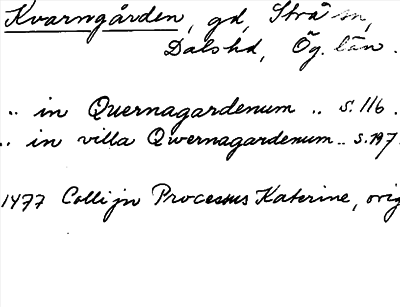 Kvarngården, gd, Strå sn,
Dalshd, Ög. län.
.. in Quernagardenum .. s. 116.
.. in villa Qwernagardenum .. s. 197.
1477 Collijn Processus Katerine, orig